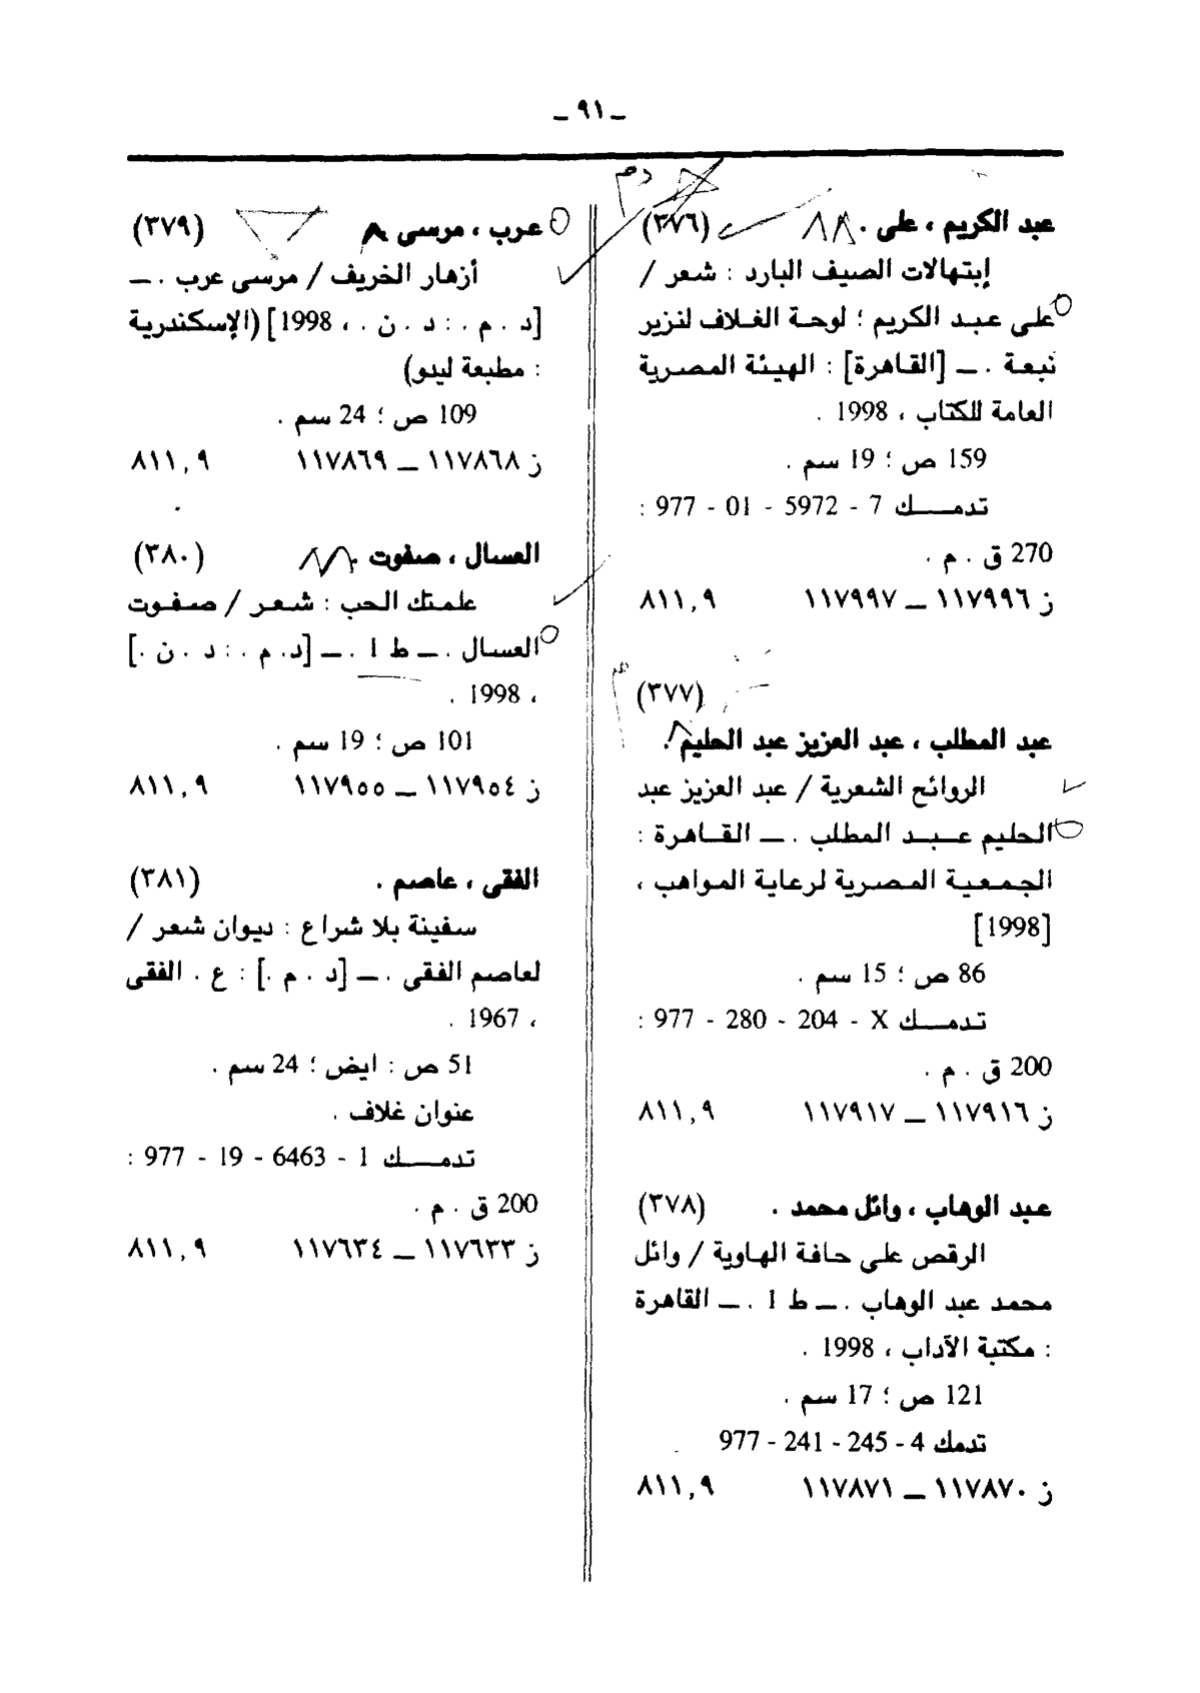 ـ ٩١ ـ
عبد الكريم ، على . ٨٨ (٣٧٦)
إبتهالات الصيف البارد : شعر /
على عبد الكريم ؛ لوحة الغلاف لنزير
نبعة . ـ [القاهرة] : الهيئة المصرية
العامة للكتاب ، 1998 .
159 ص ؛ 19 سم .
تدمك 7 - 5972 - 01 - 977 :
270 ق . م .
ز ١١٧٩٩٦ ـ ١١٧٩٩٧ ٨١١,٩
(٣٧٧)
عبد المطلب ، عبد العزيز عبد الحليم .
الروائح الشعرية / عبد العزيز عبد
الحليم عبد المطلب . ـ القاهرة :
الجمعية المصرية لرعاية المواهب ،
[1998]
86 ص ؛ 15 سم .
تدمك X - 204 - 280 - 977 :
200 ق . م .
ز ١١٧٩١٦ ـ ١١٧٩١٧ ٨١١,٩
عبد الوهاب ، وائل محمد . (٣٧٨)
الرقص على حافة الهاوية / وائل
محمد عبد الوهاب . ـ ط 1 . ـ القاهرة
: مكتبة الآداب ، 1998 .
121 ص ؛ 17 سم .
تدمك 4 - 245 - 241 - 977
ز ١١٧٨٧٠ ـ ١١٧٨٧١ ٨١١,٩
عرب ، مرسى ٨ (٣٧٩)
أزهار الخريف / مرسى عرب . ـ
[د . م . : د . ن . ، 1998] (الإسكندرية
: مطبعة ليدو)
109 ص ؛ 24 سم .
ز ١١٧٨٦٨ ـ ١١٧٨٦٩ ٨١١,٩
العسال ، صفوت . ٨٨ (٣٨٠)
علمتك الحب : شعر / صفوت
العسال . ـ ط 1 . ـ [د. م . : د . ن .]
، 1998 .
101 ص ؛ 19 سم .
ز ١١٧٩٥٤ ـ ١١٧٩٥٥ ٨١١,٩
الفقى ، عاصم . (٣٨١)
سفينة بلا شراع : ديوان شعر /
لعاصم الفقى . ـ [د . م .] : ع . الفقى
، 1967 .
51 ص : ايض ؛ 24 سم .
عنوان غلاف .
تدمك 1 - 6463 - 19 - 977 :
200 ق . م .
ز ١١٧٦٣٣ ـ ١١٧٦٣٤ ٨١١,٩